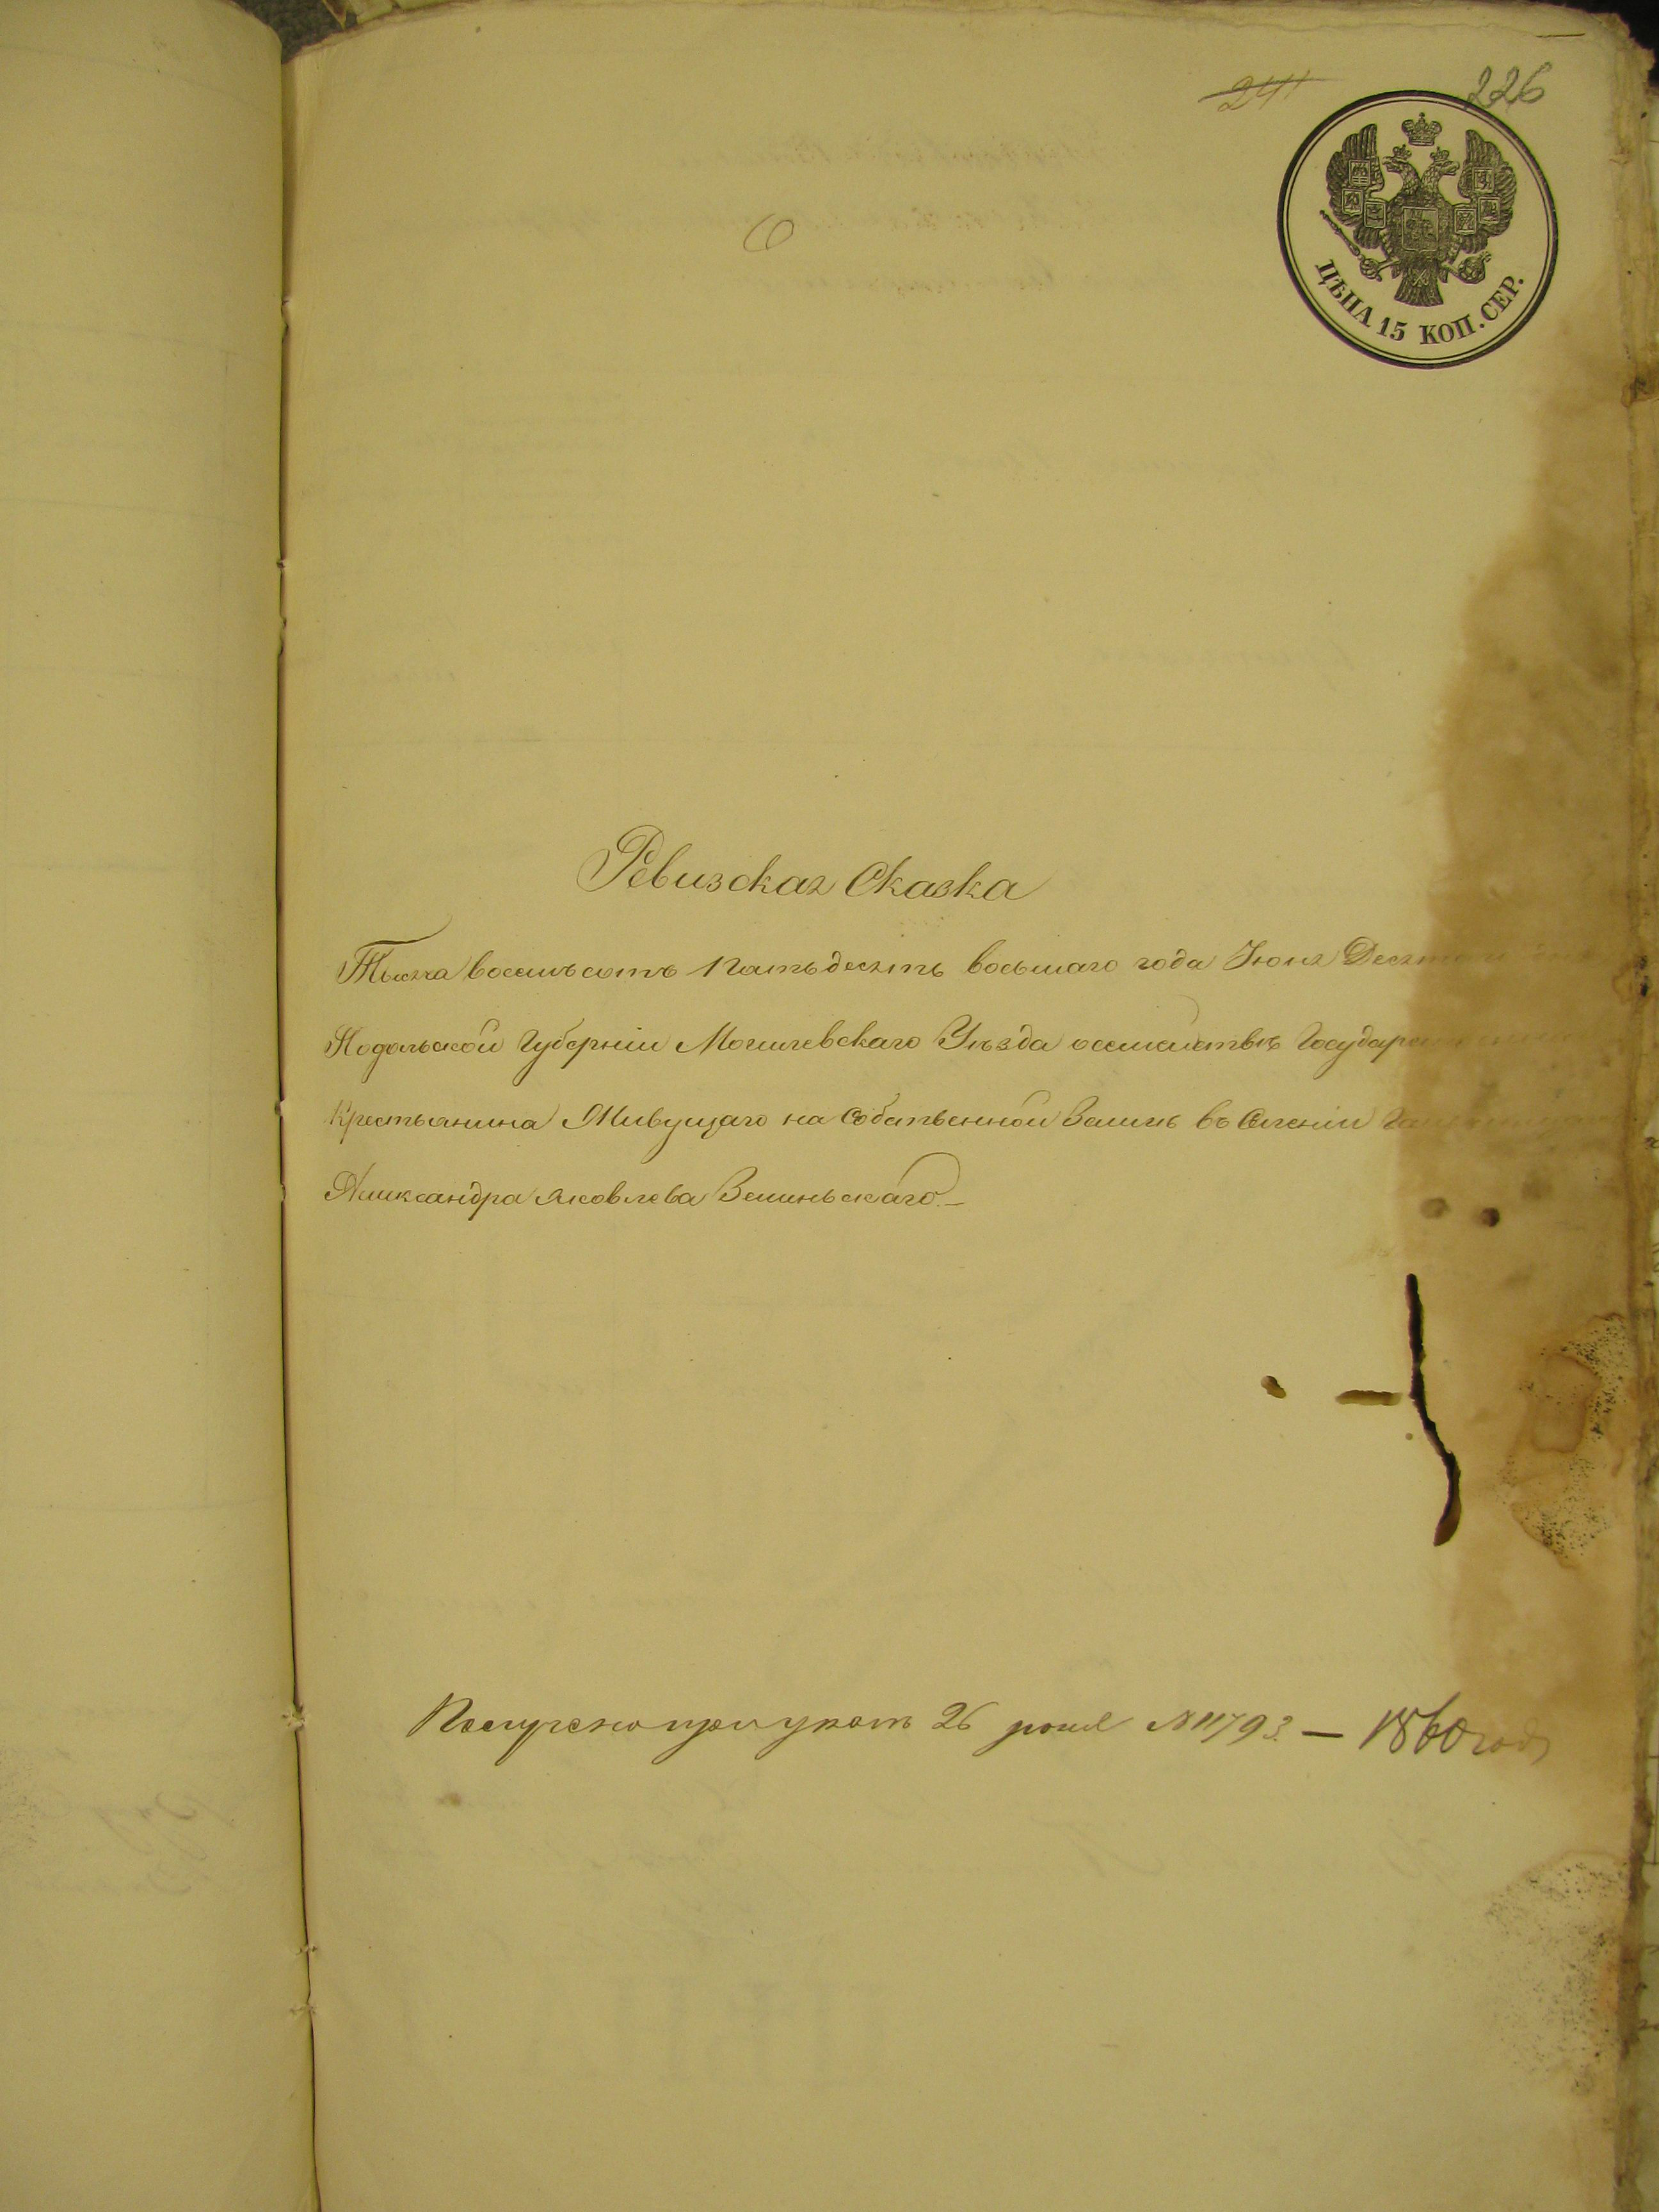 241
226
ЦѢНА 15 КОП. СЕР.
Ревизская Сказка
Тысяча восемьсотъ Пятьдесятъ восьмаго года Іюня
Подольской Губерніи Могилевскаго Уѣзда о семействѣ
Крестьянина Живущаго на Собственной Землѣ въ Селеніи
Александра Яковлева Земиньскаго. —
Получено при указѣ 26 № 11793 — 1860 года